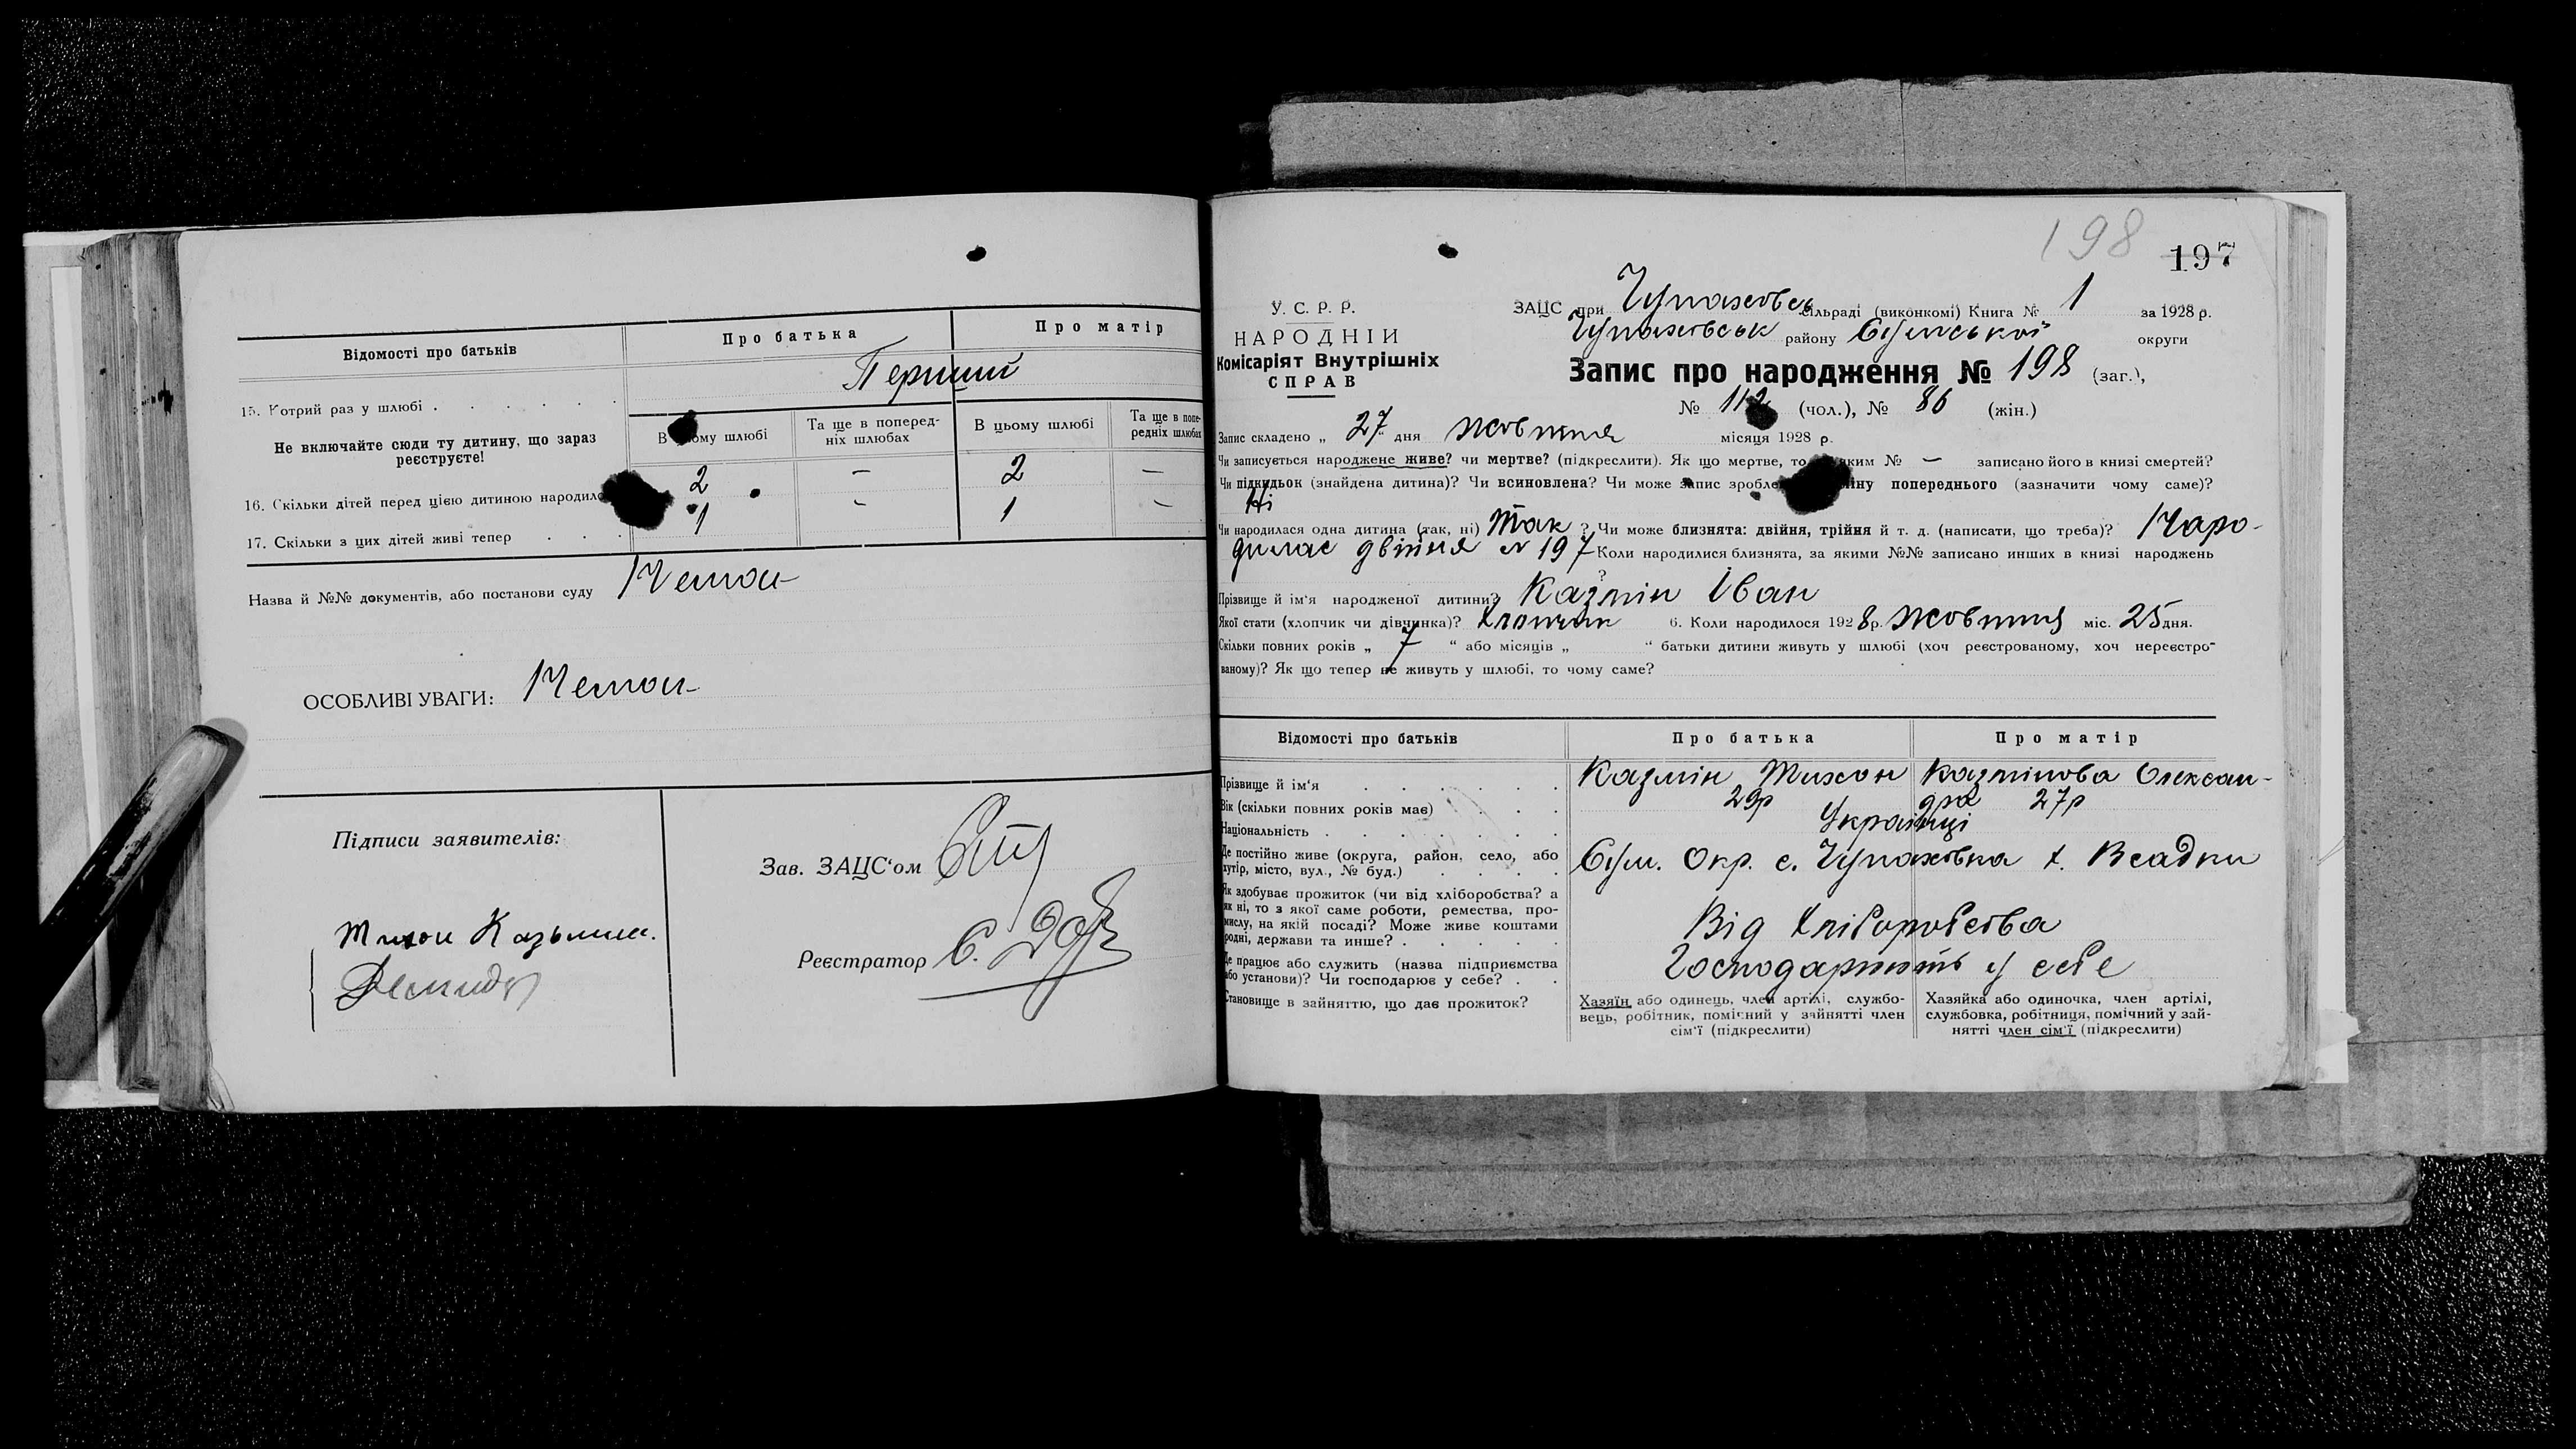 Відомості про батьків
Про батька
Про матір
15. Котрий раз у шлюбі
Перший
Не включайте сюди ту дитину, що зараз реєструєте!
В цьому шлюбі
Та ще в поперед-
ніх шлюбах
В цьому шлюбі
Та ще в попе-
редніх шлюбах
16. Скільки дітей перед цією дитиною народило
2 — 2 —
17. Скільки з цих дітей живі тепер
1 - 1 -
Назва й №№ документів, або постанови суду
Немои
ОСОБЛИВІ УВАГИ: Немои
Підписи заявителів:
Тихон Казьмин.
Зав. ЗАЦС'ом
Реєстратор
198
197
У. С. Р. Р.
НАРОДНІЙ
Комісаріят Внутрішніх
СПРАВ
ЗАЦС при Чупаховсь сільраді (виконкомі) Книга № 1 за 1928 р.
Чупаховськ району Сумської округи
Запис про народження № 198 (заг.),
№ 112 (чол.), № 86 (жін.)
Запис складено „ 27 " дня жовтня місяця 1928 р.
Чи записується народжене живе? чи мертве? (підкреслити). Як що мертве, то яким № — записано його в книзі смертей?
Чи підкидьок (знайдена дитина)? Чи всиновлена? Чи може запис зробле іну попереднього (зазначити чому саме)?
Ні
Чи народилася одна дитина (так, ні) Так ? Чи може близнята: двійня, трійня й т. д. (написати, що треба)? Наро-
дилас двійня N 197 Коли народилися близнята, за якими №№ записано инших в книзі народжень
?
Прізвище й ім'я народженої дитини? Казмін Іван
Якої стати (хлопчик чи дівчинка)? Хлопчик 6. Коли народилося 1928 р. жовтня міс. 25 дня.
Скільки повних років „ 7 " або місяців „ " батьки дитини живуть у шлюбі (хоч реєстрованому, хоч нереєстро-
ваному)? Як що тепер не живуть у шлюбі, то чому саме?
Відомості про батьків
Про батька
Про матір
Прізвище й ім'я
Казмін Тихон
Казмінова Олексан-
дра
Вік (скільки повних років має)
29р
27р
Національність
Українці
Де постійно живе (округа, район, село, або
хутір, місто, вул., № буд.)
Сум. Окр. с. Чупахівка х. Всадки
Як здобуває прожиток (чи від хліборобства? а
як ні, то з якої саме роботи, ремества, про-
мислу, на якій посаді? Може живе коштами
родні, держави та инше?
Від хліборобства
Де працює або служить (назва підприємства
або установи)? Чи господарює у себе?
Господарюють у себе
Становище в зайняттю, що дає прожиток?
Хазяїн або одинець, член артілі, службо-
вець, робітник, помічний у зайнятті член
сім'ї (підкреслити)
Хазяйка або одиночка, член артілі,
службовка, робітниця, помічний у зай-
нятті член сім'ї (підкреслити)